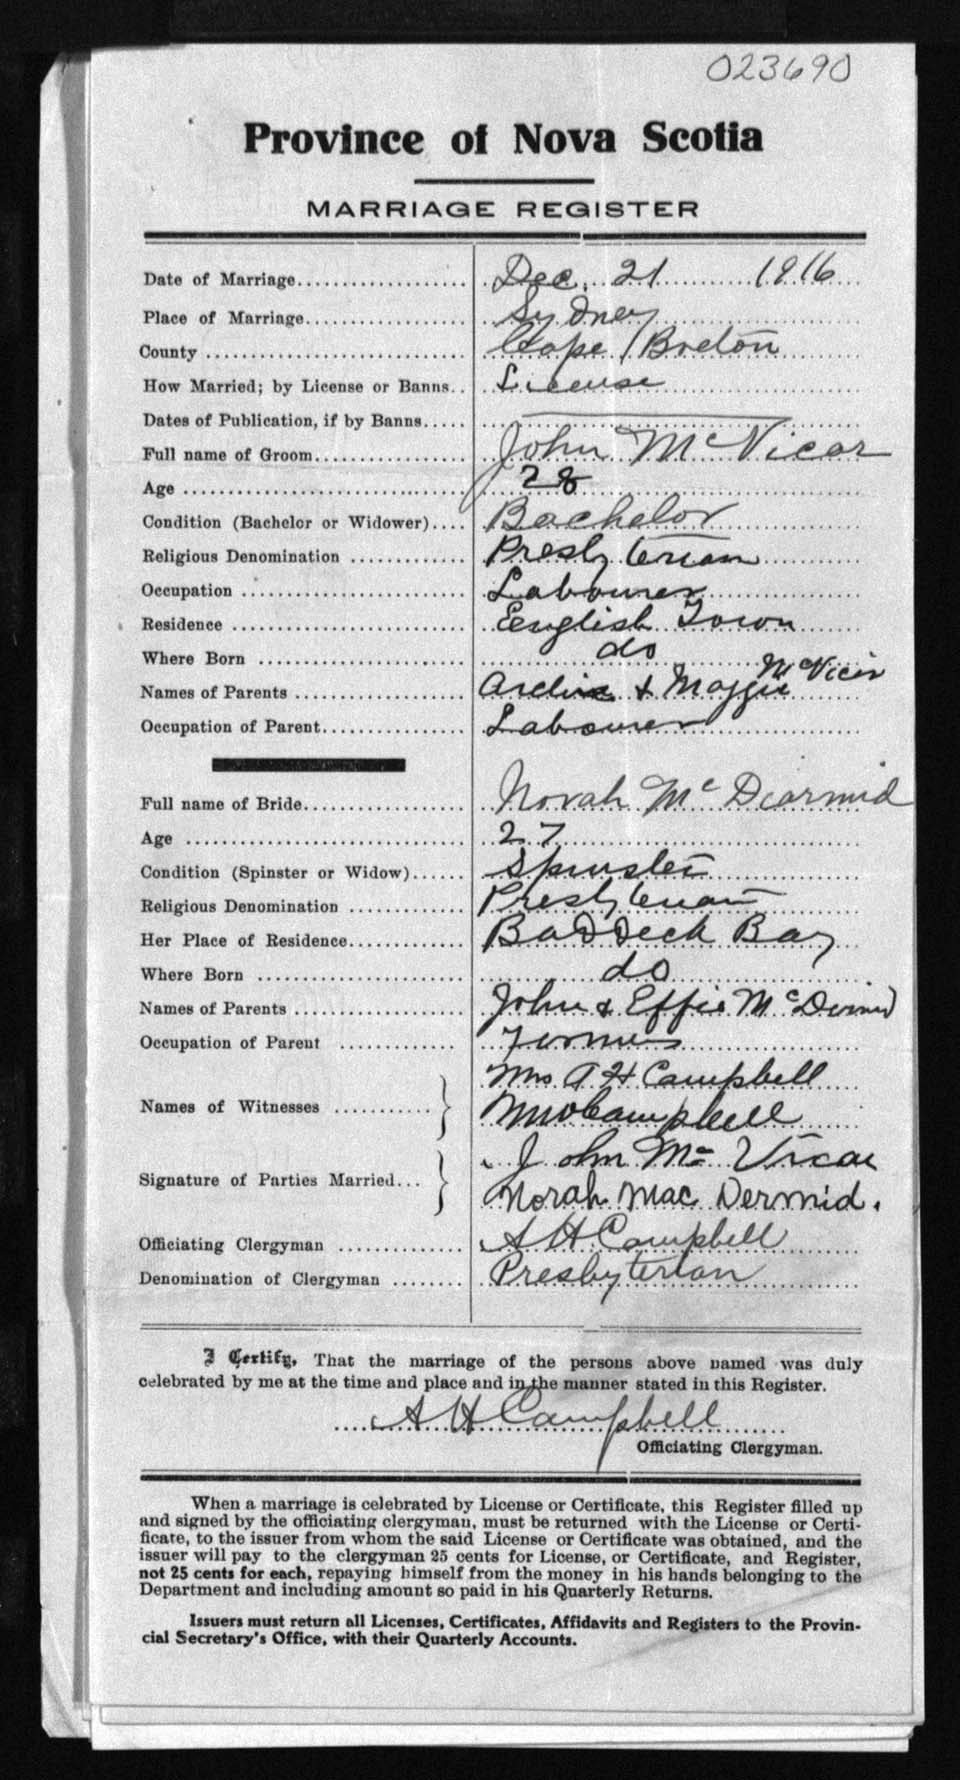 023690
Province of Nova Scotia
MARRIAGE REGISTER
Date of Marriage Dec. 21 1916
Place of Marriage Sydney
County Cape Breton
How Married; by License or Banns License
Dates of Publication, if by Banns
Full name of Groom John McVicar
Age 28
Condition (Bachelor or Widower) Bachelor
Religious Denomination Presbyterian
Occupation Labourer
Residence English Town
Where Born do
Names of Parents & Maggie McVicar
Occupation of Parent Labourer
Full name of Bride Norah McDiarmid
Age 27
Condition (Spinster or Widow) Spinster
Religious Denomination Presbyterian
Her Place of Residence Baddeck Bay
Where Born do
Names of Parents John & Effie McDermid
Occupation of Parent Farmer
Names of Witnesses Mrs A H Campbell
Campbell
Signature of Parties Married John Mc Vicar
Norah Mac Dermid.
Officiating Clergyman A H Campbell
Denomination of Clergyman Presbyterian
I Certify, That the marriage of the persons above named was duly
celebrated by me at the time and place and in the manner stated in this Register.
A H Campbell
Officiating Clergyman.
When a marriage is celebrated by License or Certificate, this Register filled up
and signed by the officiating clergyman, must be returned with the License or Certi-
ficate, to the issuer from whom the said License or Certificate was obtained, and the
issuer will pay to the clergyman 25 cents for License, or Certificate, and Register,
not 25 cents for each, repaying himself from the money in his hands belonging to the
Department and including amount so paid in his Quarterly Returns.
Issuers must return all Licenses, Certificates, Affidavits and Registers to the Provin-
cial Secretary's Office, with their Quarterly Accounts.